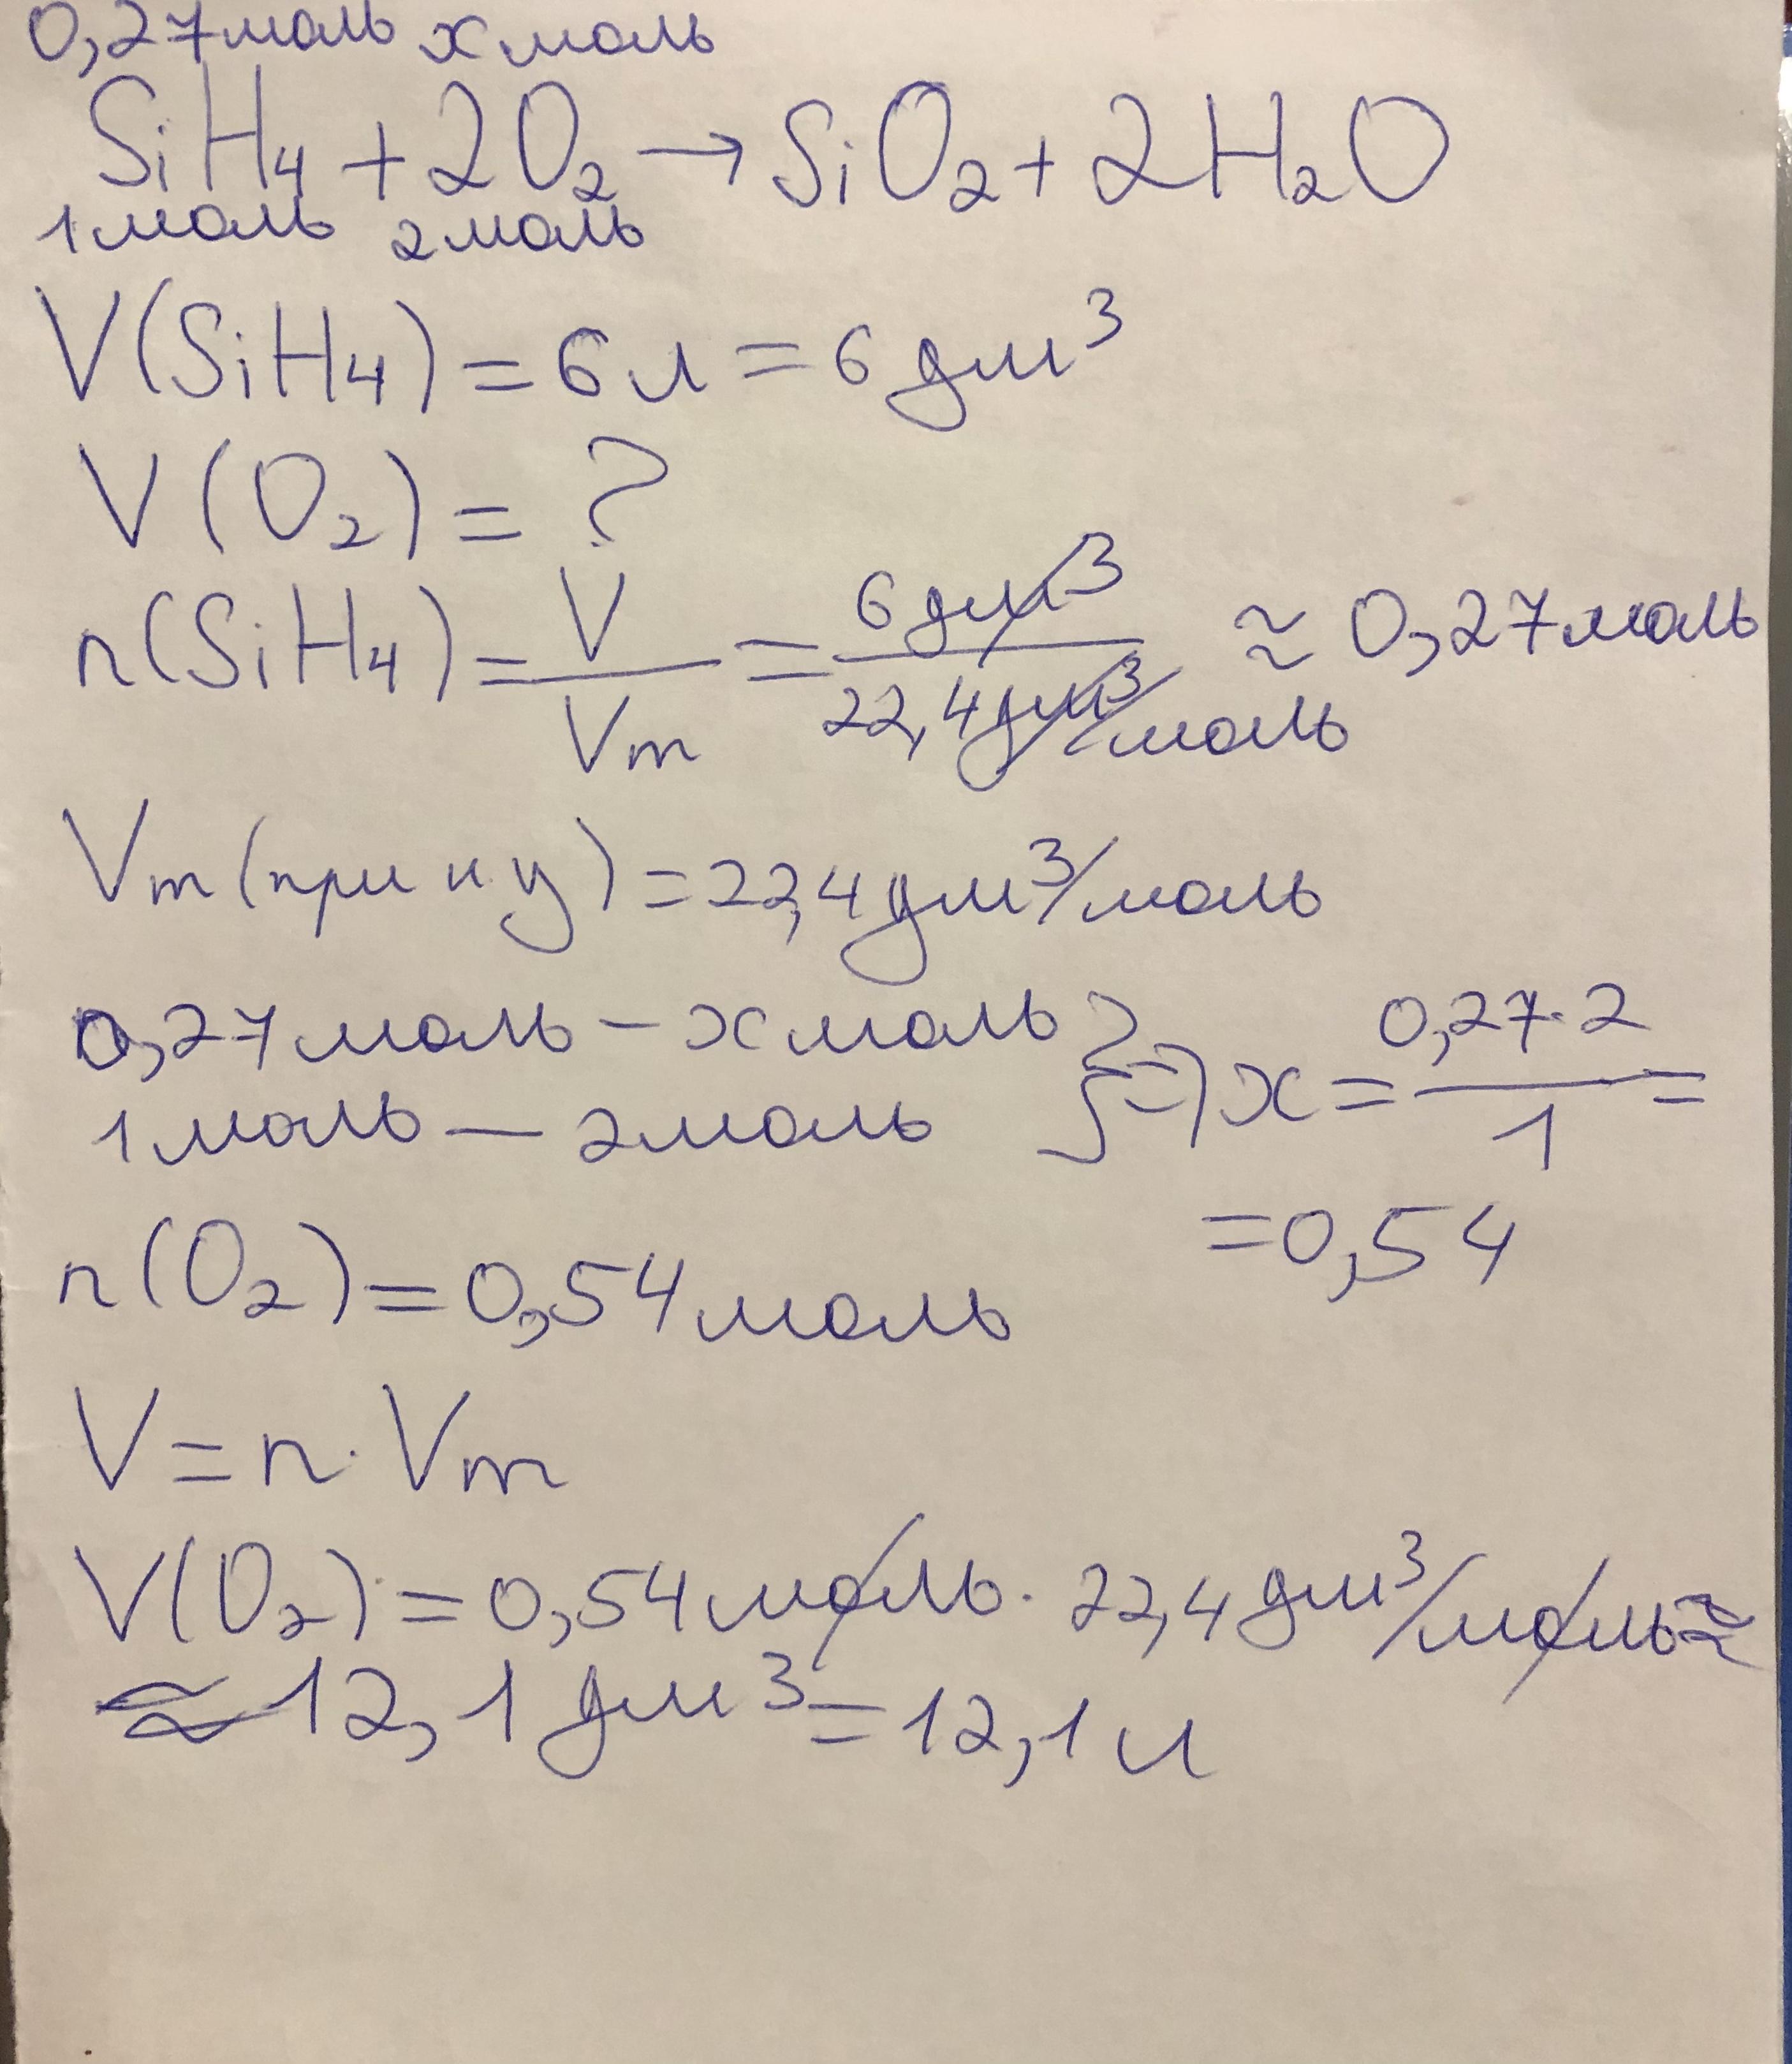 0,27моль xмоль
SiH₄ + 2O₂ → SiO₂ + 2H₂O
1моль 2моль
V(SiH₄) = 6 л = 6 дм³
V(O₂) = ?
n(SiH₄) = V/Vm = 6 дм³/22,4дм³/моль ≈ 0,27моль
Vm (при н у) = 22,4дм³/моль
0,27моль – xмоль } => x = 0,27·2/1 =
1моль — 2моль
= 0,54
n(O₂) = 0,54моль
V = n · Vm
V(O₂) = 0,54моль · 22,4дм³/моль ≈
≈ 12,1дм³ = 12,1л